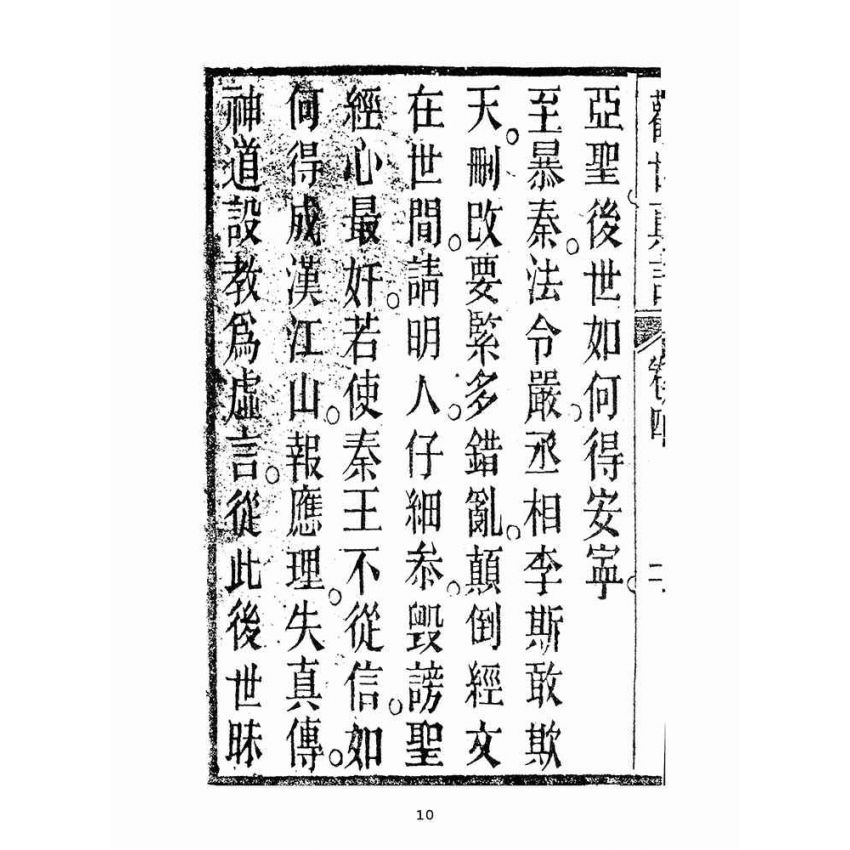 世真言 卷四 二
亞聖。後世如何得安寧。
至暴秦。法令嚴。丞相李斯敢欺
天。刪改要緊多錯亂。顛倒經文
在世間。請明人。仔細叅。毀謗聖
經心最奸。若使秦王不從信。如
何得成漢江山。報應理。失真傳。
神道設教爲虛言。從此後世昧
10